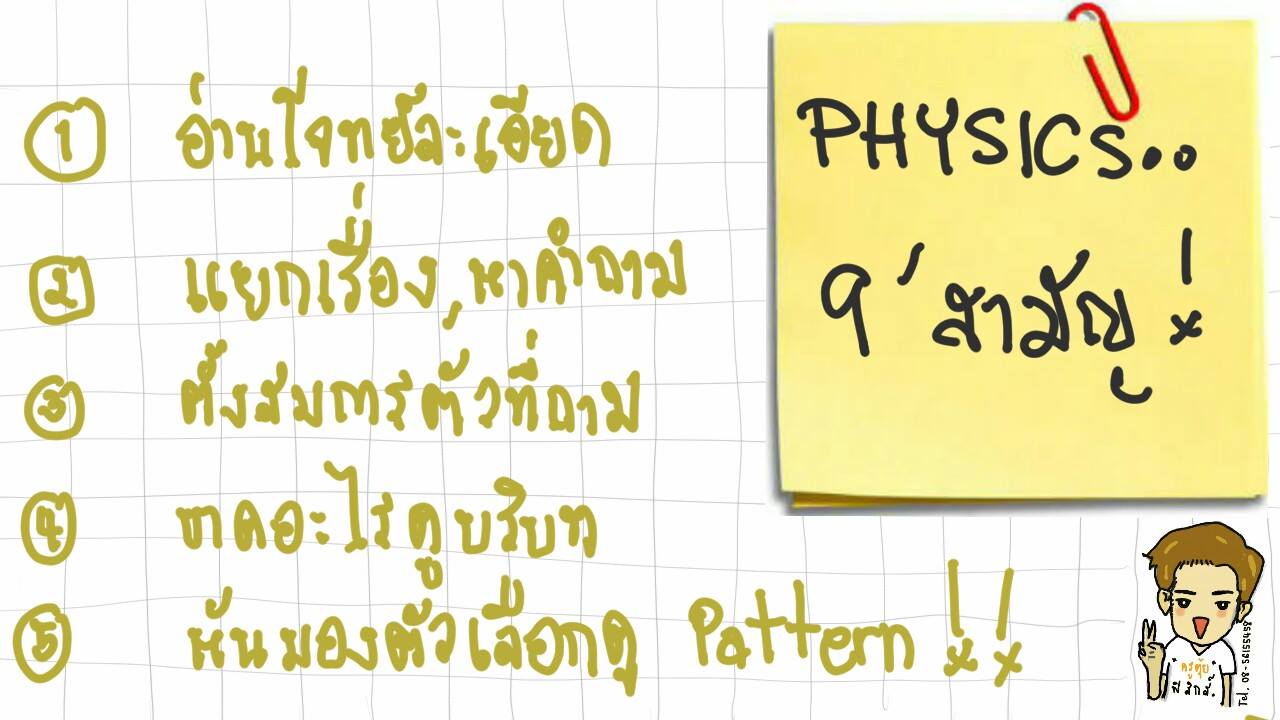 ① อ่านโจทย์ละเอียด
② แยกเรื่อง, หาคำถาม
③ ตั้งสมการตัวที่ถาม
④ ขาดอะไรดูบริบท
⑤ หันมองตัวเลือกดู Pattern !!
PHYSICS..
9' สามัญ !
ครูตุ้ย
ฟิสิกส์